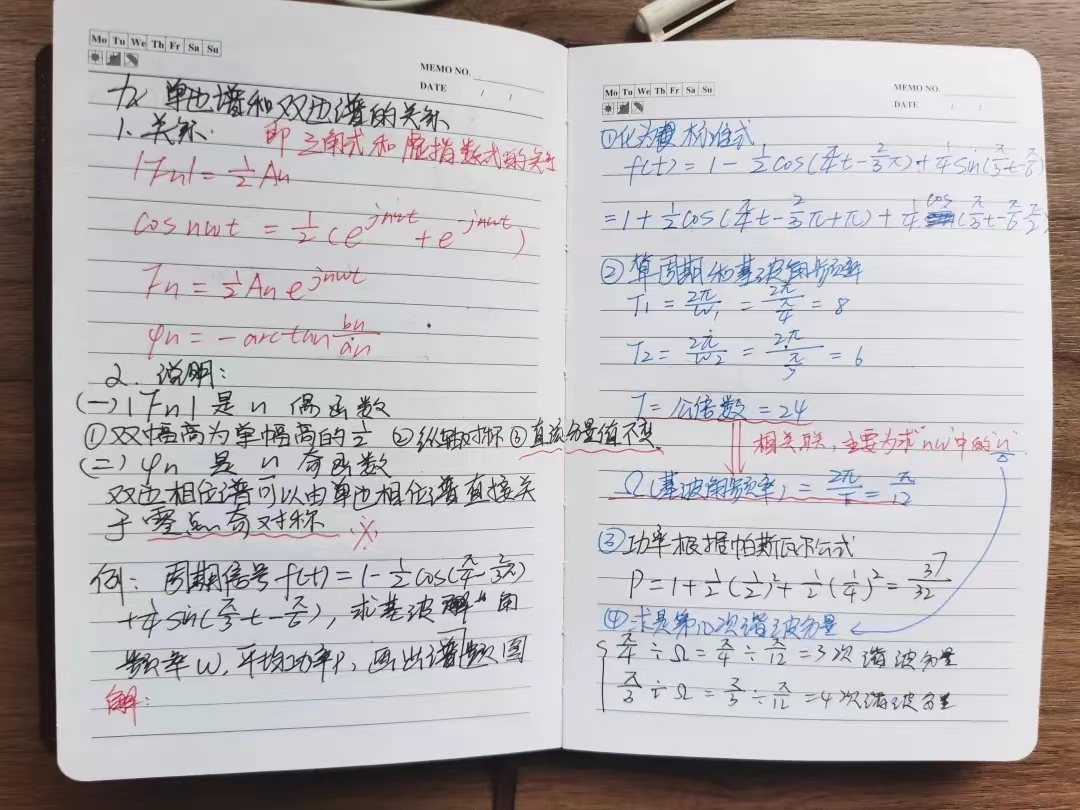 Mo Tu We Th Fr Sa Su
MEMO NO.
DATE / /
九、单边谱和双边谱的关系
1. 关系: 即三角式和虚指数式的关系
|Fn| = 1/2 An
cos nwt = 1/2 (e^{jnwt} + e^{-jnwt})
Fn = 1/2 An e^{jnwt}
φn = -arctan bn/an
2. 说明:
(一) |Fn| 是 n 偶函数
①双幅高为单幅高的 1/2 ②纵轴对称 ③直流分量值不变
(二) φn 是 n 奇函数
双边相位谱可以由单边相位谱直接关
于零点奇对称 ※
例: 周期信号 f(t) = 1 - 1/2 cos(π/4 - 2/3π)
+ 1/4 sin(π/3 t - π/6), 求基波 角
频率 w, 平均功率P, 画出谱频图
解:
Mo Tu We Th Fr Sa Su
MEMO NO.
DATE / /
①化为 标准式
f(t) = 1 - 1/2 cos(π/4 t - 2/3 π) + 1/4 sin(π/3 t - π/6)
= 1 + 1/2 cos(π/4 t - 2/3 π + π) + 1/4 cos(π/3 t - π/6 - π/2)
②算周期和基波角频率
T1 = 2π/w1 = 2π/(π/4) = 8
T2 = 2π/w2 = 2π/(π/3) = 6
T = 公倍数 = 24
相关联, 主要为求"nw"中的"n"
Ω(基波角频率) = 2π/T = π/12
③功率根据帕斯瓦尔公式
P = 1 + 1/2 (1/2)² + 1/2 (1/4)² = 37/32
④求是第几次谐波分量
π/4 ÷ Ω = π/4 ÷ π/12 = 3次谐波分量
π/3 ÷ Ω = π/3 ÷ π/12 = 4次谐波分量